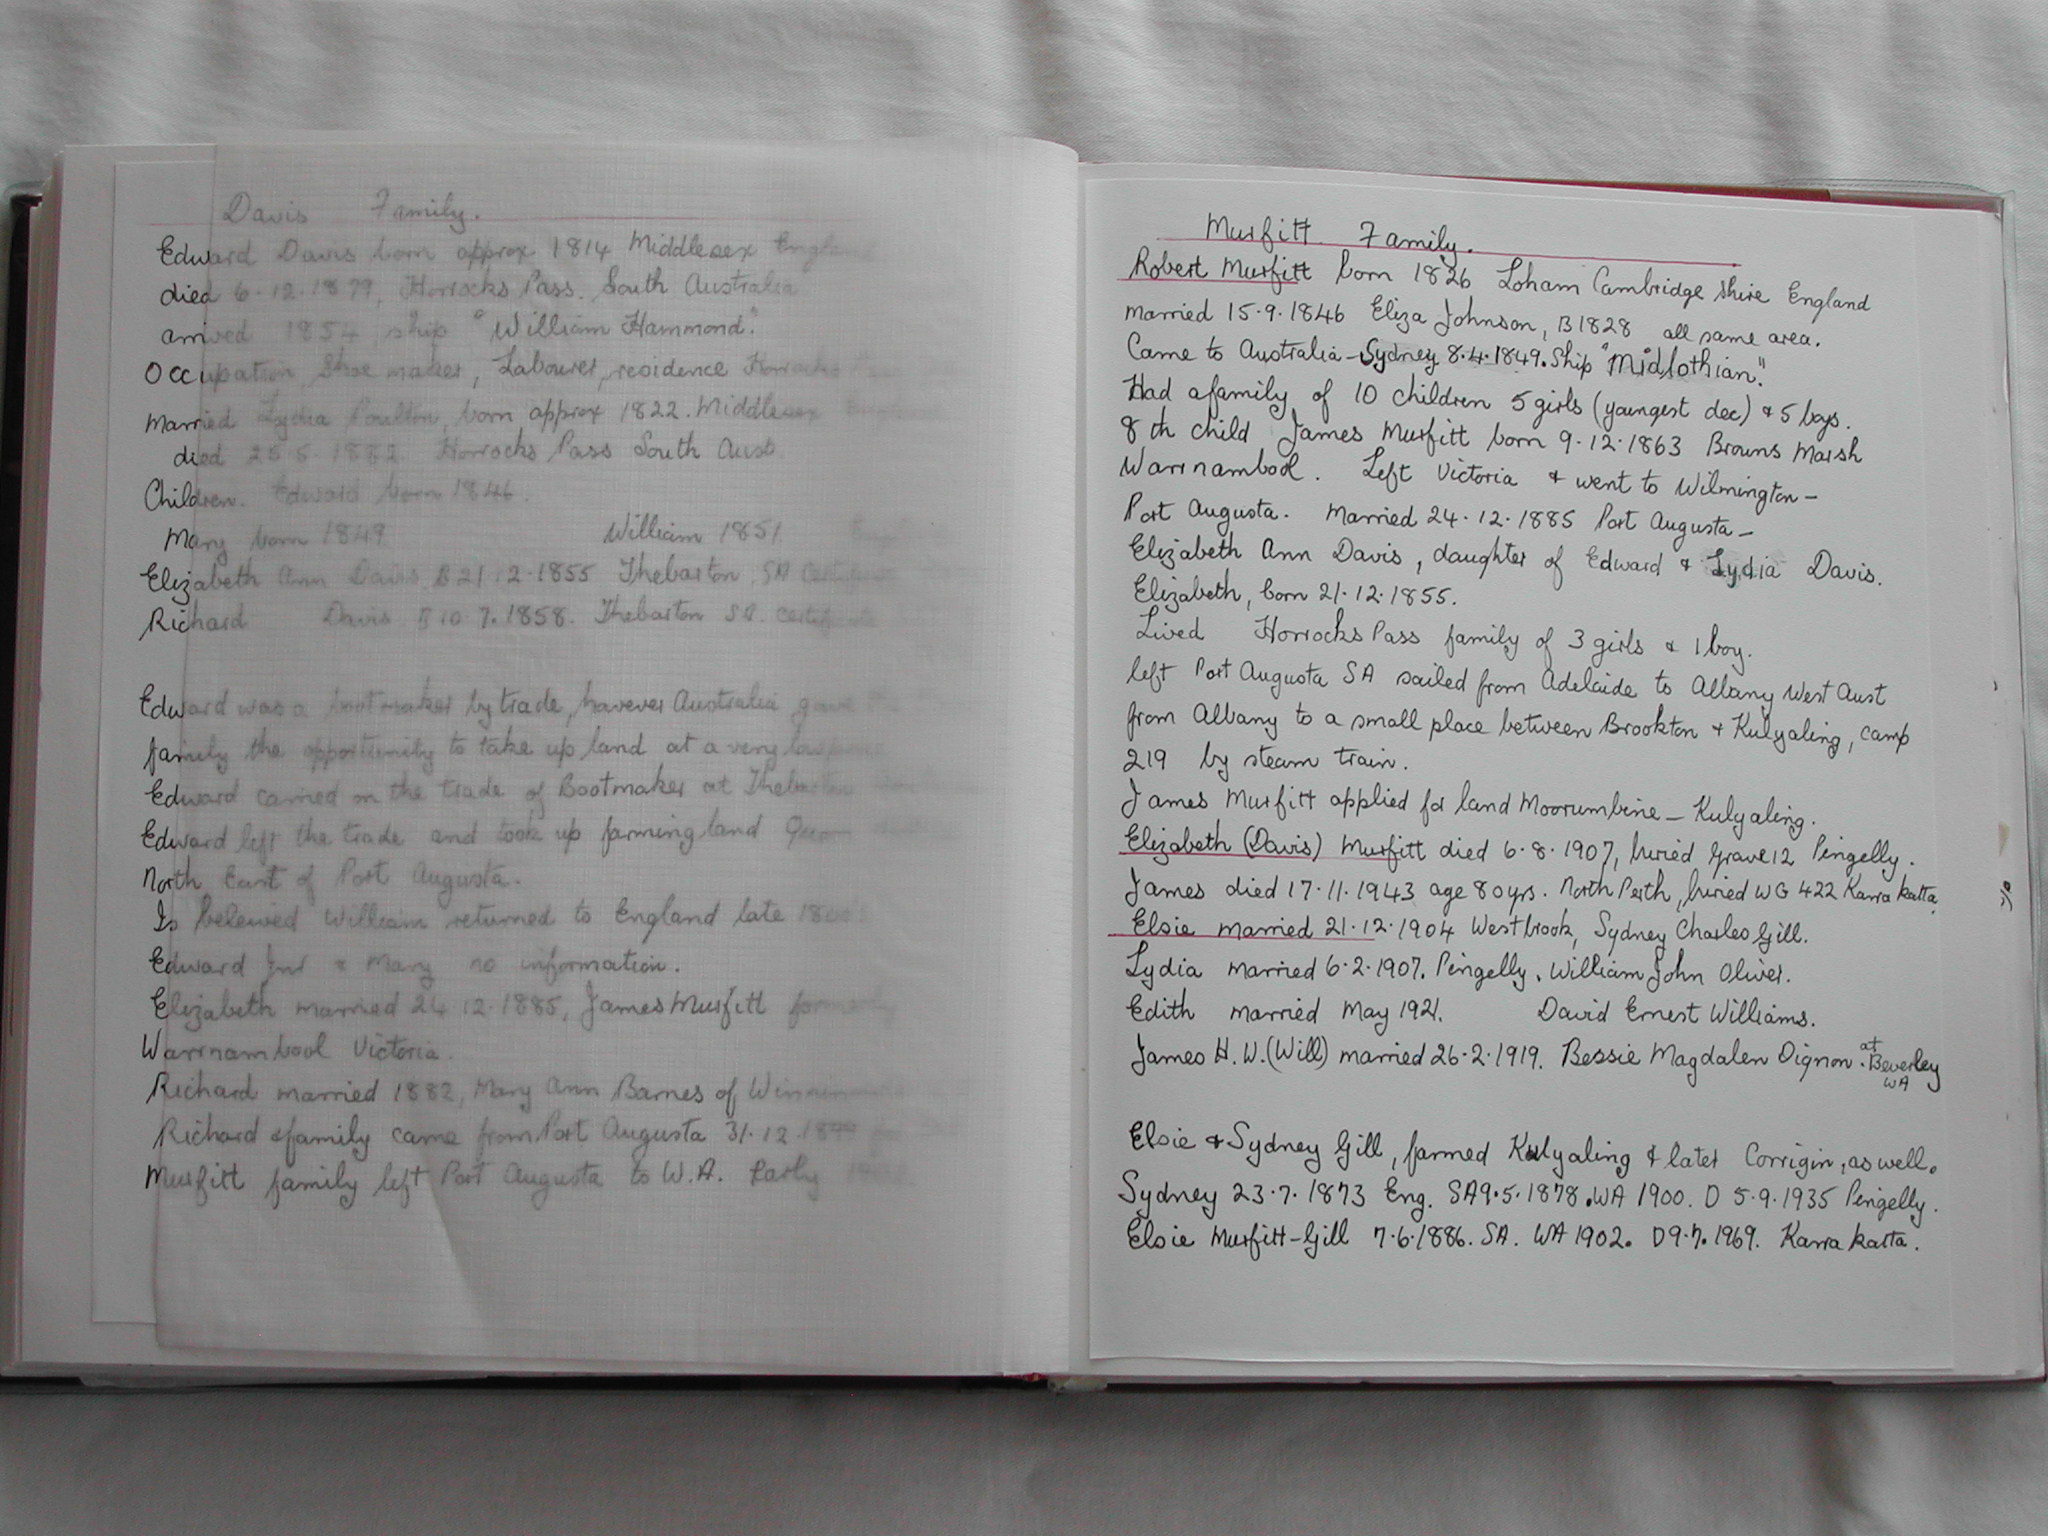 Davis Family.
Edward Davis born approx 1814 Middlesex England
died 6.12.1879, Horrocks Pass. South Australia
arrived 1854 ship "William Hammond".
Occupation, Shoe maker, Labourer, residence Horrocks
Married Lydia Poulton, born approx 1822. Middlesex
died 25.5.1882. Horrocks Pass South Aust.
Children. Edward born 1846.
Mary born 1849. William 1851.
Elizabeth Ann Davis B 21.12.1855 Thebarton, SA Certificate
Richard Davis B 10.7.1858. Thebarton SA. Certificate
Edward was a bootmaker by trade, however Australia gave
family the opportunity to take up land at a very low
Edward carried on the trade of Bootmaker at Thebarton
Edward left the trade and took up farming land Quorn
North East of Port Augusta.
Is beleived William returned to England late
Edward Jnr & Mary no information.
Elizabeth married 24.12.1885, James Murfitt formerly
Warrnambool Victoria.
Richard married 1882, Mary Ann Barnes of
Richard & family came from Port Augusta 31.12.1899
Murfitt family left Port Augusta to W.A. Early
Murfitt Family.
Robert Murfitt born 1826 Loham Cambridge shire England
married 15.9.1846 Eliza Johnson, B1828 all same area.
Came to Australia - Sydney 8.4.1849. Ship "Midlothian".
Had a family of 10 children 5 girls (youngest dec) & 5 boys.
8th child James Murfitt born 9.12.1863 Browns Marsh
Warrnambool. Left Victoria & went to Wilmington -
Port Augusta. Married 24.12.1885 Port Augusta -
Elizabeth Ann Davis, daughter of Edward & Lydia Davis.
Elizabeth, born 21.12.1855.
Lived Horrocks Pass family of 3 girls & 1 boy.
left Port Augusta SA sailed from Adelaide to Albany West Aust
from Albany to a small place between Brookton & Kulyaling, camp
219 by steam train.
James Murfitt applied for land Moorumbine - Kulyaling.
Elizabeth (Davis) Murfitt died 6.8.1907, buried Grave 12 Pingelly.
James died 17.11.1943 age 80yrs. North Perth, buried WG 422 Karra katta.
Elsie married 21.12.1904 Westbrook, Sydney Charles Gill.
Lydia married 6.2.1907. Pingelly. William John Oliver.
Edith married May 1921. David Ernest Williams.
James H.W. (Will) married 26.2.1919. Bessie Magdalen Dignon. at Beverley
WA
Elsie & Sydney Gill, farmed Kulyaling & later Corrigin, as well.
Sydney 23.7.1873 Eng. SA 9.5.1878. WA 1900. D 5.9.1935 Pingelly.
Elsie Murfitt-Gill 7.6.1886. SA. WA 1902. D 9.7.1969. Karra katta.